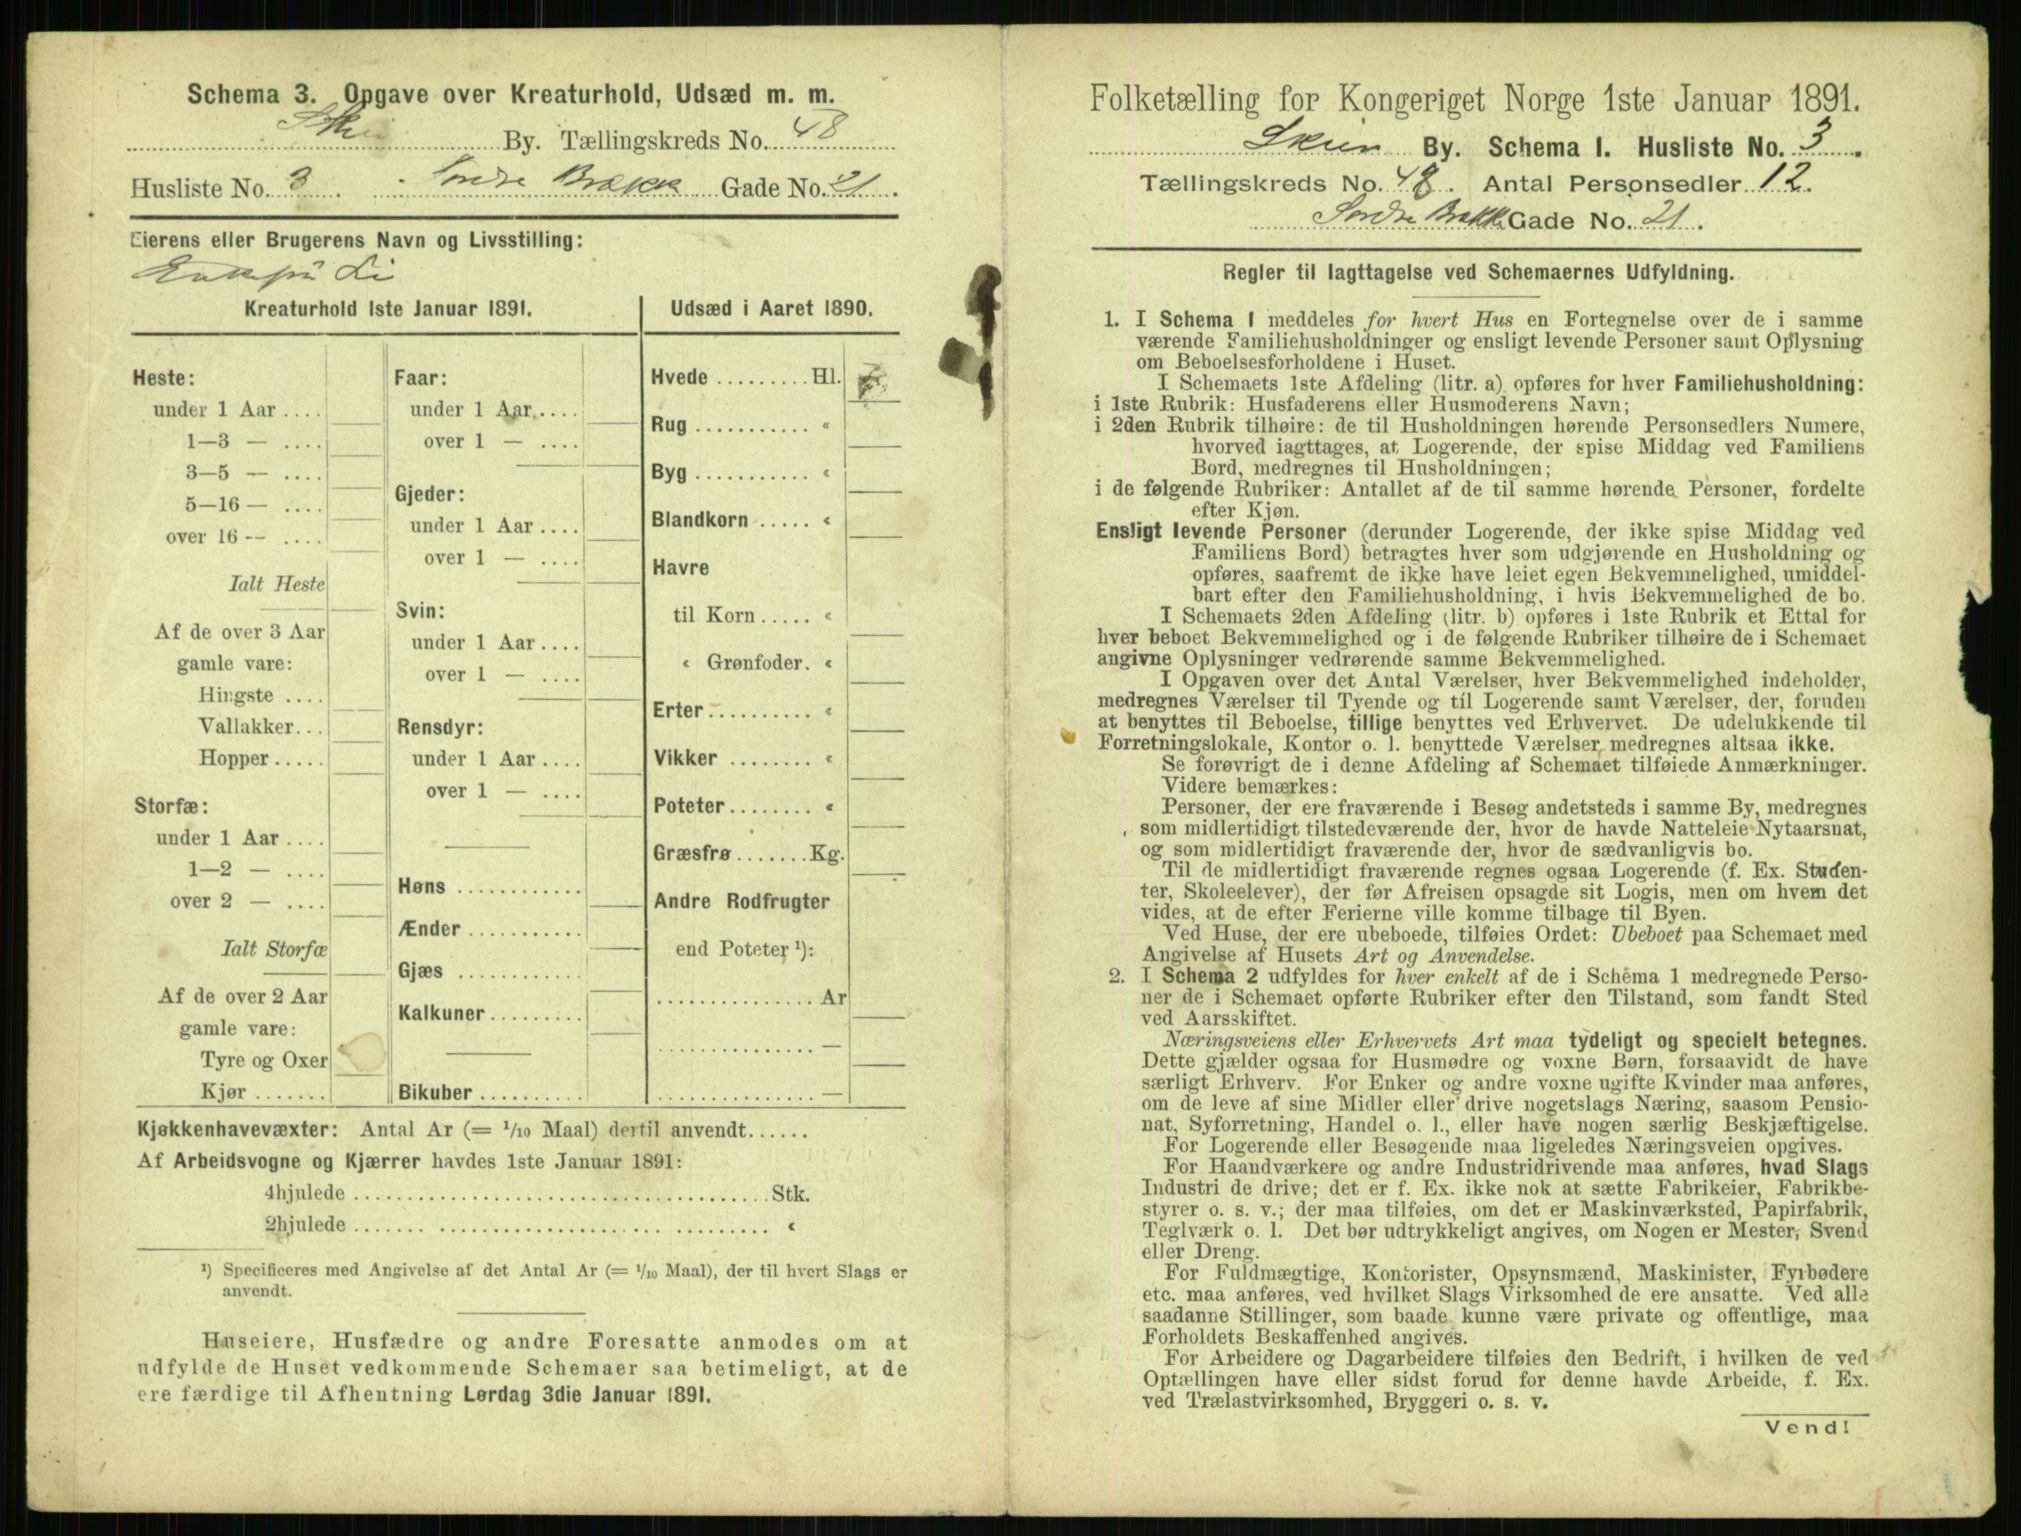 Schema 3. Opgave over Kreaturhold, Udsæd m. m.
Skien By. Tællingskreds No. 48
Husliste No. 3. Søndre Brække Gade No. 21.
Eierens eller Brugerens Navn og Livsstilling:
Enkefru Li
Kreaturhold 1ste Januar 1891.
Heste:
under 1 Aar ....
1—3 — ....
3—5 — ....
5—16 — ....
over 16 — ....
Ialt Heste
Af de over 3 Aar
gamle vare:
Hingste ....
Vallakker...
Hopper.....
Storfæ:
under 1 Aar ....
1—2 — ....
over 2 — ....
Ialt Storfæ
Af de over 2 Aar
gamle vare:
Tyre og Oxer
Kjør .......
Faar:
under 1 Aar....
over 1 — ....
Gjeder:
under 1 Aar ....
over 1 — ....
Svin:
under 1 Aar ....
over 1 — ....
Rensdyr:
under 1 Aar ....
over 1 — ....
Høns ............
Ænder ...........
Gjæs ............
Kalkuner.........
Bikuber ..........
Udsæd i Aaret 1890.
Hvede .........Hl.
Rug ........... «
Byg ........... «
Blandkorn ..... «
Havre
til Korn ..... «
« Grønfoder. «
Erter.......... «
Vikker ........ «
Poteter........ «
Græsfrø .......Kg.
Andre Rodfrugter
end Poteter ¹):
............... Ar
............... —
............... —
Kjøkkenhavevæxter: Antal Ar (= 1/10 Maal) dertil anvendt......
Af Arbeidsvogne og Kjærrer havdes 1ste Januar 1891:
4hjulede ........................................Stk.
2hjulede ....... ....................... ......... «
¹) Specificeres med Angivelse af det Antal Ar (= 1/10 Maal), der til hvert Slags er
anvendt.
Huseiere, Husfædre og andre Foresatte anmodes om at
udfylde de Huset vedkommende Schemaer saa betimeligt, at de
ere færdige til Afhentning Lørdag 3die Januar 1891.
Folketælling for Kongeriget Norge 1ste Januar 1891.
Skien By. Schema I. Husliste No. 3.
Tællingskreds No. 48. Antal Personsedler 12.
Søndre Brække Gade No. 21.
Regler til Iagttagelse ved Schemaernes Udfyldning.
1. I Schema 1 meddeles for hvert Hus en Fortegnelse over de i samme
værende Familiehusholdninger og ensligt levende Personer samt Oplysning
om Beboelsesforholdene i Huset.
I Schemaets 1ste Afdeling (litr. a) opføres for hver Familiehusholdning:
i 1ste Rubrik: Husfaderens eller Husmoderens Navn;
i 2den Rubrik tilhøire: de til Husholdningen hørende Personsedlers Numere,
hvorved iagttages, at Logerende, der spise Middag ved Familiens
Bord, medregnes til Husholdningen;
i de følgende Rubriker: Antallet af de til samme hørende Personer, fordelte
efter Kjøn.
Ensligt levende Personer (derunder Logerende, der ikke spise Middag ved
Familiens Bord) betragtes hver som udgjørende en Husholdning og
opføres, saafremt de ikke have leiet egen Bekvemmelighed, umiddel-
bart efter den Familiehusholdning, i hvis Bekvemmelighed de bo.
I Schemaets 2den Afdeling (litr. b) opføres i 1ste Rubrik et Ettal for
hver beboet Bekvemmelighed og i de følgende Rubriker tilhøire de i Schemaet
angivne Oplysninger vedrørende samme Bekvemmelighed.
I Opgaven over det Antal Værelser, hver Bekvemmelighed indeholder,
medregnes Værelser til Tyende og til Logerende samt Værelser, der, foruden
at benyttes til Beboelse, tillige benyttes ved Erhvervet. De udelukkende til
Forretningslokale, Kontor o. l. benyttede Værelser medregnes altsaa ikke.
Se forøvrigt de i denne Afdeling af Schemaet tilføiede Anmærkninger.
Videre bemærkes:
Personer, der ere fraværende i Besøg andetsteds i samme By, medregnes
som midlertidigt tilstedeværende der, hvor de havde Natteleie Nytaarsnat,
og som midlertidigt fraværende der, hvor de sædvanligvis bo.
Til de midlertidigt fraværende regnes ogsaa Logerende (f. Ex. Studen-
ter, Skoleelever), der før Afreisen opsagde sit Logis, men om hvem det
vides, at de efter Ferierne ville komme tilbage til Byen.
Ved Huse, der ere ubeboede, tilføies Ordet: Ubeboet paa Schemaet med
Angivelse af Husets Art og Anvendelse.
2. I Schema 2 udfyldes for hver enkelt af de i Schema 1 medregnede Perso-
ner de i Schemaet opførte Rubriker efter den Tilstand, som fandt Sted
ved Aarsskiftet.
Næringsveiens eller Erhvervets Art maa tydeligt og specielt betegnes.
Dette gjælder ogsaa for Husmødre og voxne Børn, forsaavidt de have
særligt Erhverv. For Enker og andre voxne ugifte Kvinder maa anføres,
om de leve af sine Midler eller drive nogetslags Næring, saasom Pensio-
nat, Syforretning, Handel o. l., eller have nogen særlig Beskjæftigelse.
For Logerende eller Besøgende maa ligeledes Næringsveien opgives.
For Haandværkere og andre Industridrivende maa anføres, hvad Slags
Industri de drive; det er f. Ex. ikke nok at sætte Fabrikeier, Fabrikbe-
styrer o. s. v.; der maa tilføies, om det er Maskinværksted, Papirfabrik,
Teglværk o. l. Det bør udtrykkeligt angives, om Nogen er Mester, Svend
eller Dreng.
For Fuldmægtige, Kontorister, Opsynsmænd, Maskinister, Fyrbødere
etc. maa anføres, ved hvilket Slags Virksomhed de ere ansatte. Ved alle
saadanne Stillinger, som baade kunne være private og offentlige, maa
Forholdets Beskaffenhed angives.
For Arbeidere og Dagarbeidere tilføies den Bedrift, i hvilken de ved
Optællingen have eller sidst forud for denne havde Arbeide, f. Ex.
ved Trælastvirksomhed, Bryggeri o. s. v.
Vend!